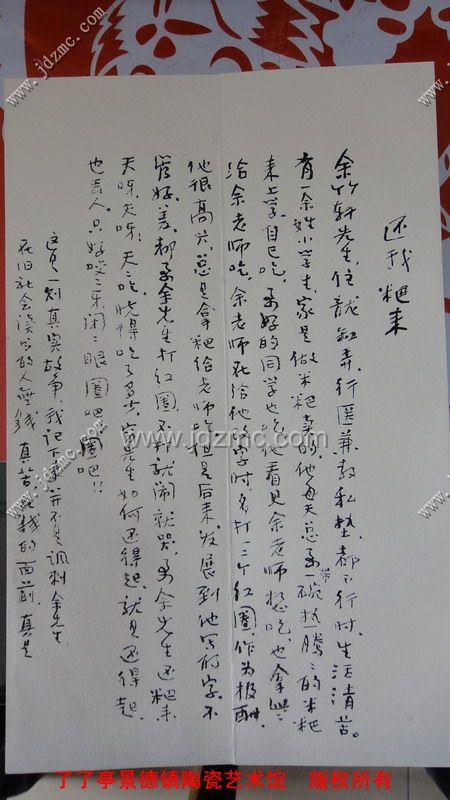 还我粑来
余竹轩先生,住龙缸弄,行医兼教私塾,都不行时,生活清苦。
有一余姓小学生,家是做米粑卖的,他每天总要带一碗热腾腾的米粑
来上学,自己吃,要好的同学也吃,他看见余老师想吃,也拿些
给余老师吃,余老师就给他的字时多打二三个红圈,作为报酬
他很高兴,总是拿粑给老师吃,但是后来,发展到他写的字,不
管好、差,都要余先生打红圈,不打就闹就哭,要余先生还粑来
天呀天呀,天天吃,晓得吃了多少,穷先生如何还得起,就是还得起,
也丢人,只好哎三乐,闭二眼圈吧!圈吧!!
这是一则真实故事,我记下来并不是讽刺余先生,
在旧社会读书的人无钱,真苦,在钱的面前,真是
www.jdzmc.com
www.jdzmc.com
www.jdzmc.com
www.jdzmc.com
www.jdzmc.com
了了亭景德镇陶瓷艺术馆 版权所有